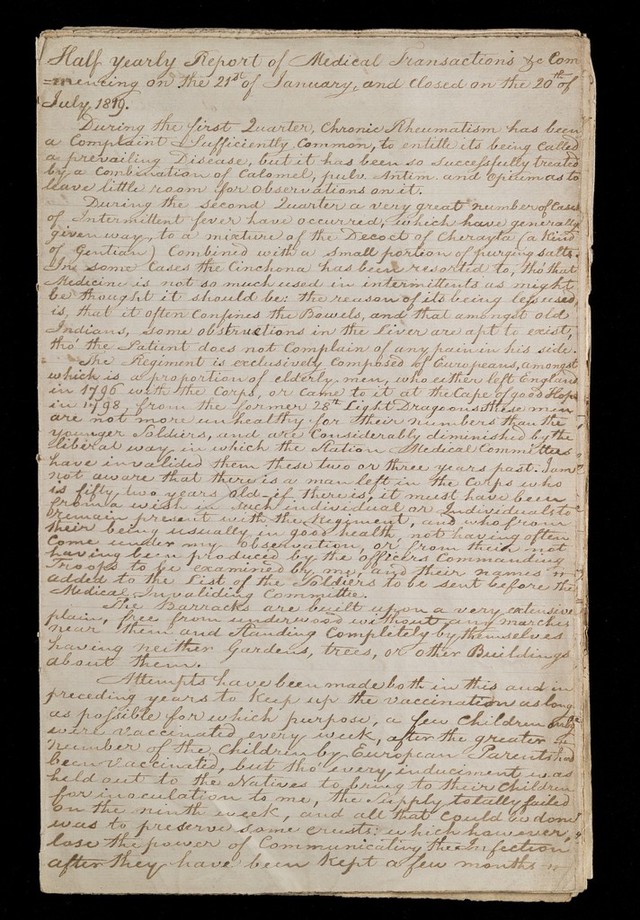 Half yearly Report of Medical Transactions &c Com
=mencing on the 21st of January, and closed on the 20th of
July, 1819.
During the first Quarter, Chronic Rheumatism has been
a Complaint sufficiently common, to entitle its being called
a prevailing Disease, but it has been so successfully treated
by a Combination of Calomel, pulv. Antim. and Opium as to
leave little room for observations on it.
During the second Quarter a very great number of Cases
of Intermittent fever have occurred, which have generally
given way, to a mixture of the Decoct of Cherayta (a Kind
of Gentian) Combined with a small portion of purging salts.
In some Cases the Cinchona has been resorted to, tho' that
Medicine is not so much used in intermittents as might
be thought it should be: the reason of its being less used,
is, that it often Confines the Bowels, and that amongst old
Indians, some obstructions in the Liver are apt to exist,
tho' the Patient does not Complain of any pain in his side.
The Regiment is exclusively Composed of Europeans, amongst
which is a proportion of elderly men, who either left England
in 1796 with the Corps, or came to it at the Cape of good Hope
in 1798, from the former 28th Light Dragoons these men
are not more unhealthy for their numbers than the
younger Soldiers, and are Considerably diminished by the
liberal way in which the Station Medical Committees
have invalided them these two or three years past. I am
not aware that there is a man left in the Corps who
is fifty two years old – if there is, it must have been
from a wish in such individual or Individuals to
remain present with the Regiment, and who from
their being usually in good health not having often
come under my observation, or from their not
having been produced by the officers Commanding
Troops to be examined by me, and their names
added to the List of the Soldiers to be sent before the
Medical Invaliding Committee.
The Barracks are built upon a very extensive
plain, free from underwood without any marshes
near them and standing completely by themselves
having neither Gardens, trees, or other Buildings
about them.
Attempts have been made both in this and in
preceding years to keep up the vaccination as long
as possible for which purpose, a few Children only
were vaccinated every week, after the greater
number of the Children by European Parents had
been vaccinated, but tho' every inducement was
held out to the Natives to bring to their Children
for inoculation to me, the supply totally failed
on the ninth week, and all that could be done
was to preserve some crusts: which however,
lose the power of Communicating the Infection
after they have been kept a few months